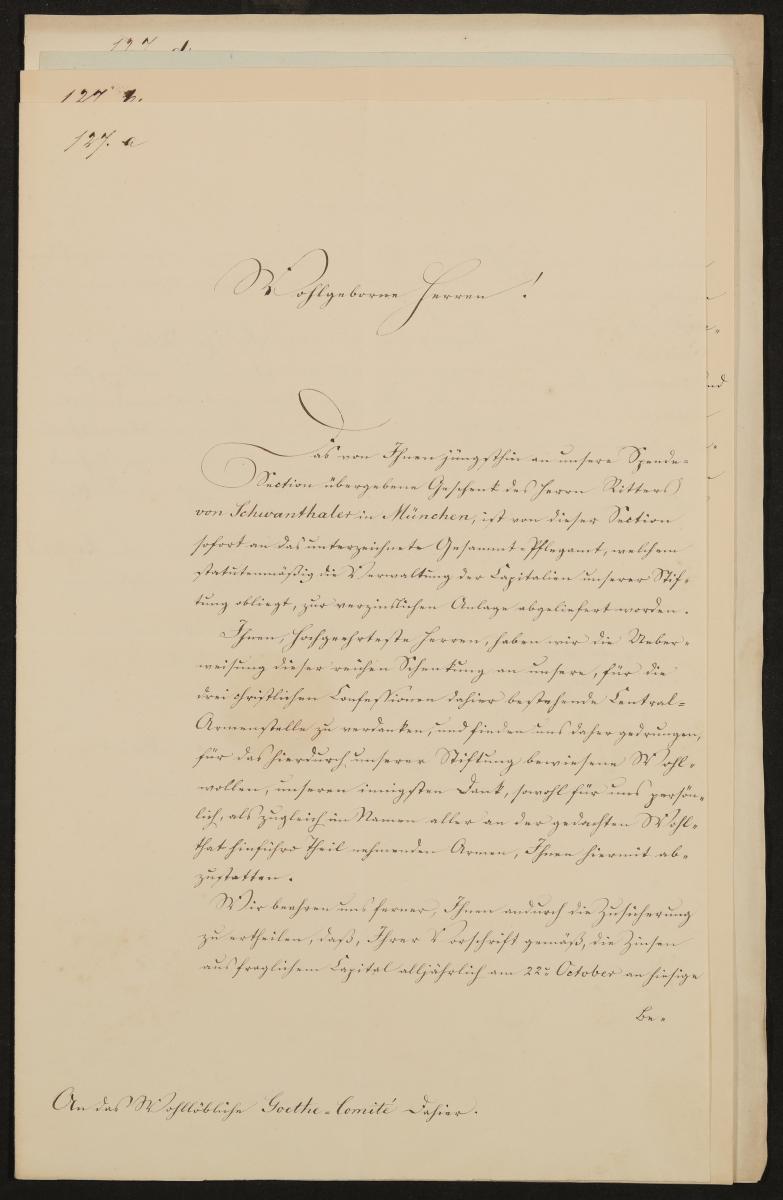 127 d.
127 b.
127. a
Wohlgeborne Herren!
Das von Ihnen jüngsthin an unsere Spende-
Section übergebene Geschenk des Herrn Ritters
von Schwanthaler in München, ist von dieser Section
sofort an das unterzeichnete Gesammt-Pflegamt, welchem
statutenmäßig die Verwaltung der Capitalien unserer Stif-
tung obliegt, zur verzinslichen Anlage abgeliefert worden.
Ihnen, Hochgeehrteste Herren, haben wir die Ueber-
weisung dieser reichen Schenkung an unsere, für die
drei christlichen Confessionen dahier bestehende Central-
Armenstelle zu verdanken, und finden uns daher gedrungen,
für das hierdurch unserer Stiftung bewiesene Wohl-
wollen, unseren innigsten Dank, sowohl für uns persön-
lich, als zugleich im Namen aller an der gedachten Wohl-
that hinführo Theil nehmenden Armen, Ihnen hiermit ab-
zustatten.
Wir beehren uns ferner, Ihnen andurch die Zusicherung
zu ertheilen, daß, Ihrer Vorschrift gemäß, die Zinsen
aus fraglichem Capital alljährlich am 22n October an hiesige
Be-
An das Wohllöbliche Goethe-Comité dahier.